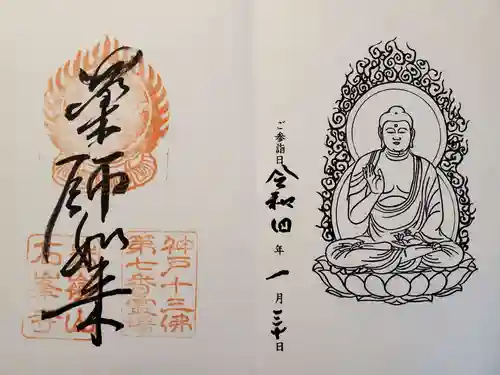 ご参詣日 令和四年一月三十日
薬師如来
神戸十三佛
第七番霊場
山
石峯寺